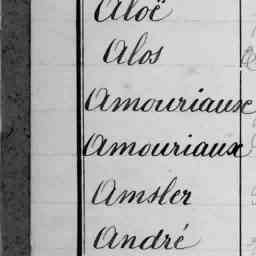 Aloë
Alos
Amouriause
Amouriaux
Amsler
André